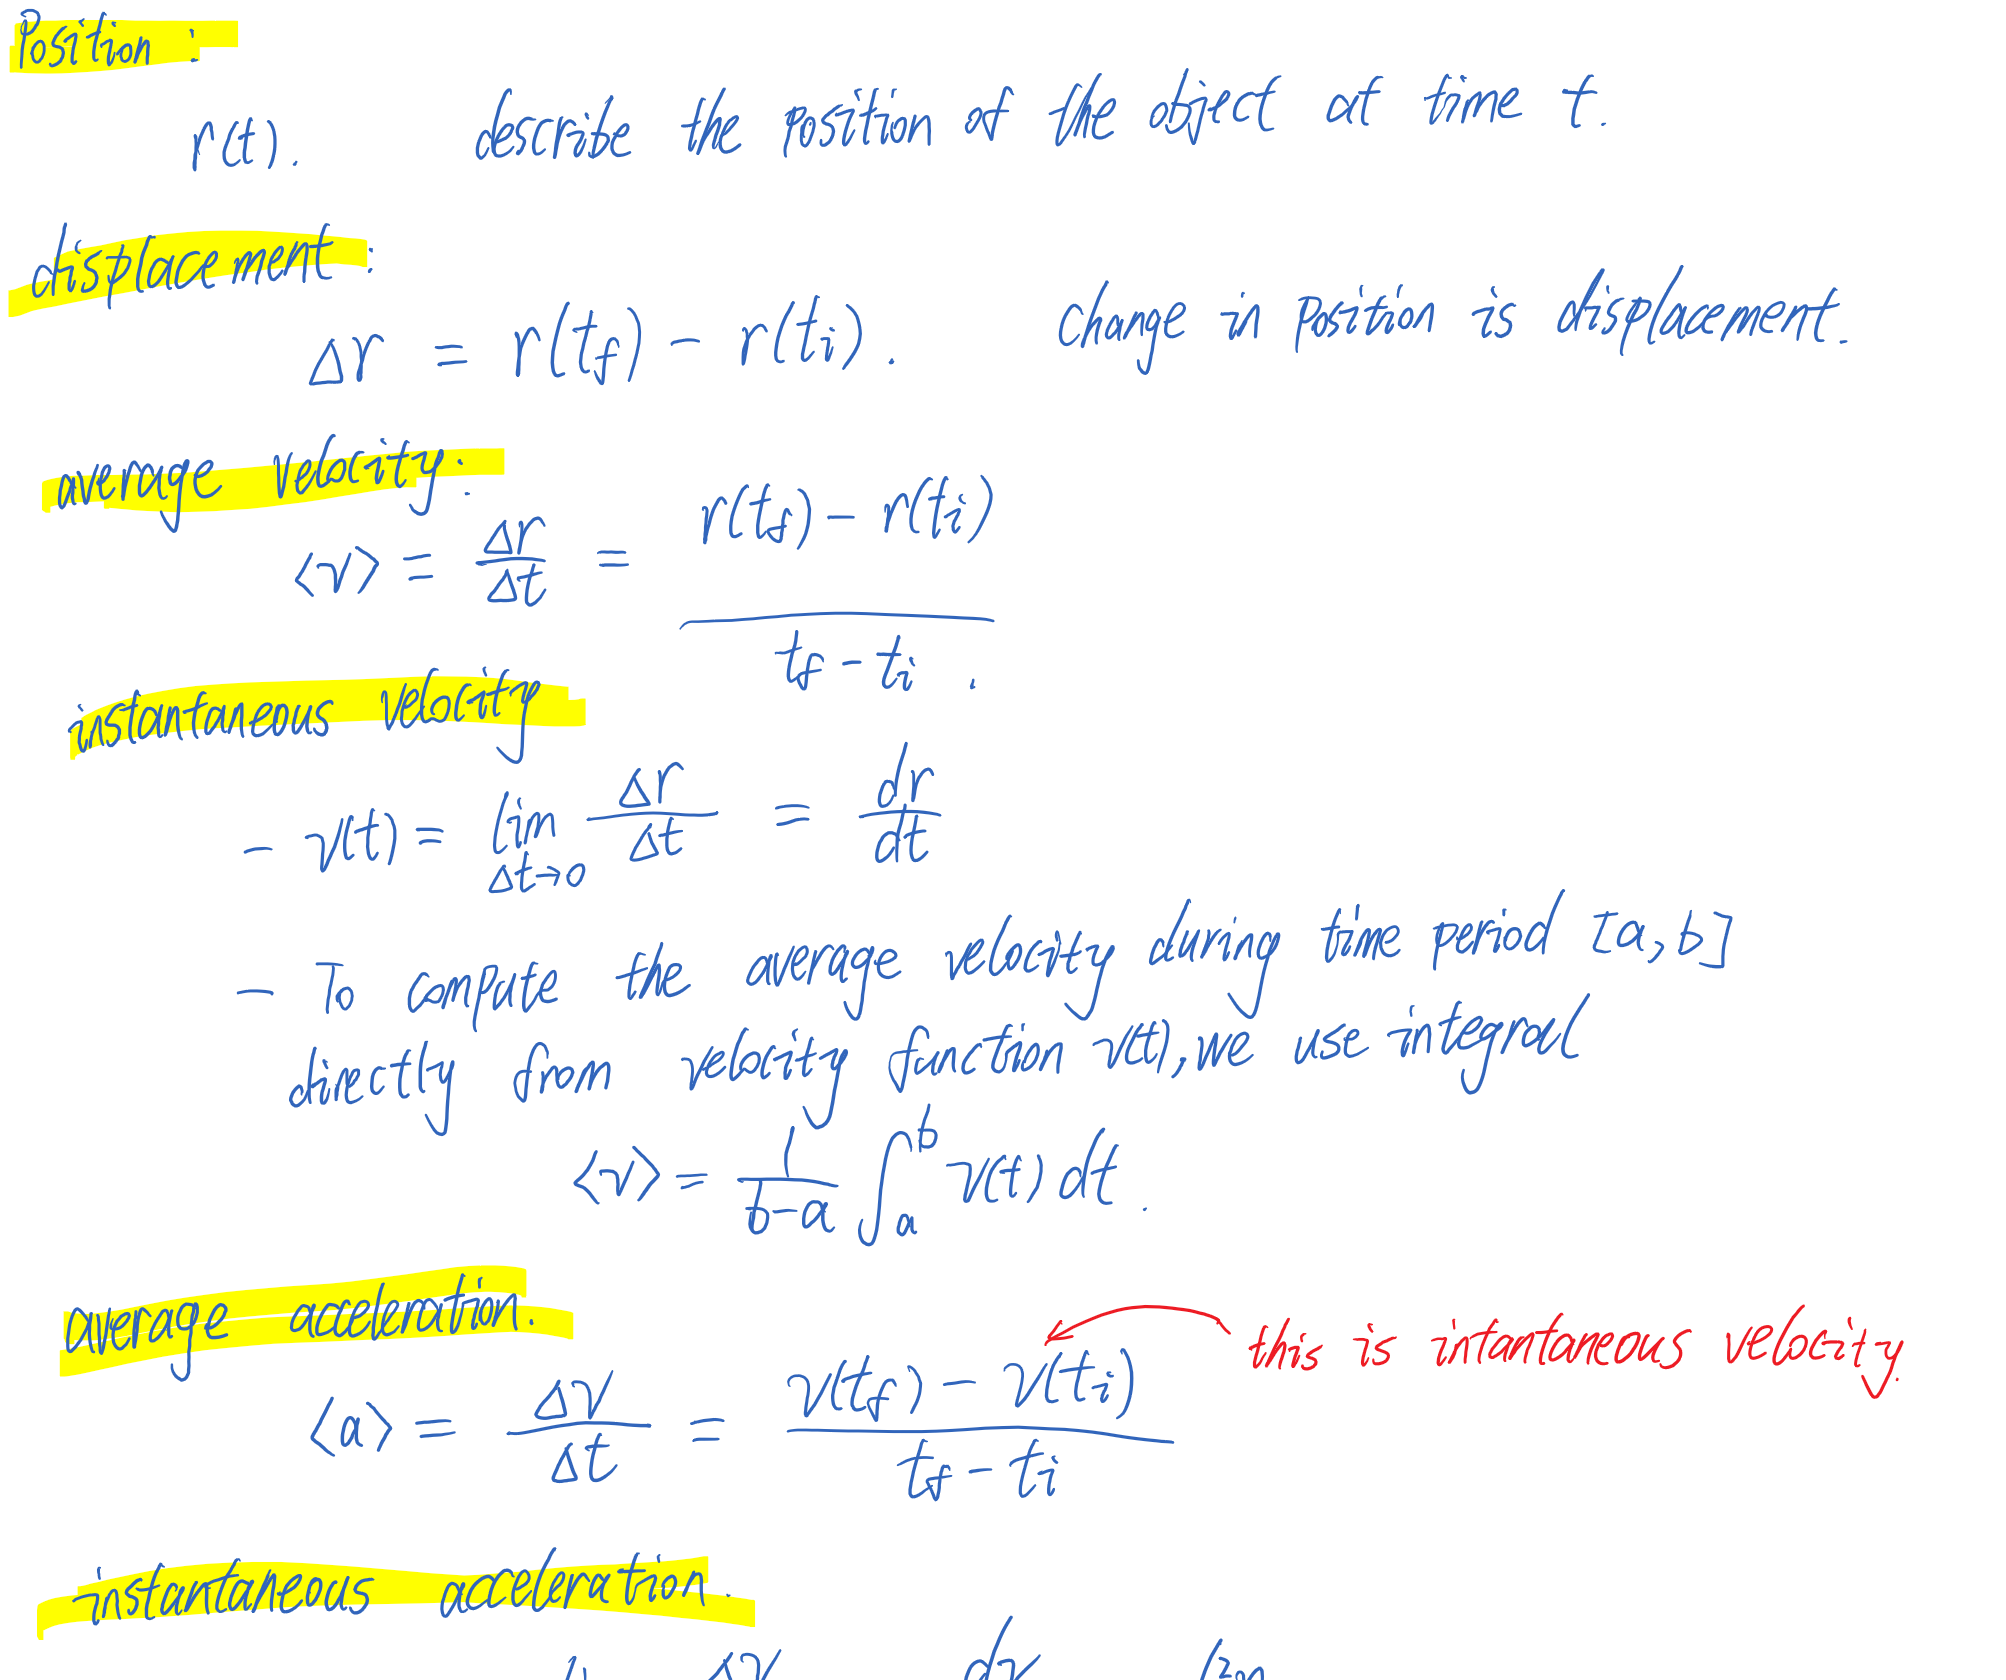 Position :
r(t). describe the position of the object at time t.
displacement :
Δr = r(tf) - r(ti). Change in position is displacement.
average velocity :
<v> = Δr/Δt = (r(tf) - r(ti))/(tf - ti).
instantaneous velocity
- v(t) = lim Δt→0 Δr/Δt = dr/dt
- To compute the average velocity during time period [a, b]
directly from velocity function v(t), we use integral
<v> = 1/(b-a) ∫_a^b v(t) dt.
average acceleration. this is intantaneous velocity.
<a> = Δv/Δt = (v(tf) - v(ti))/(tf - ti)
instantaneous acceleration.